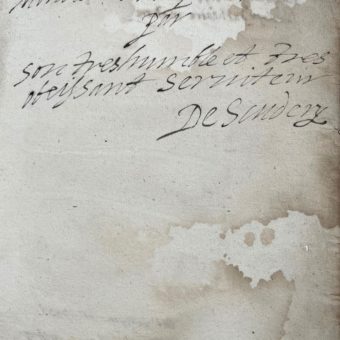 par
son treshumble et tres
obeissant seruiteur
De Scudery